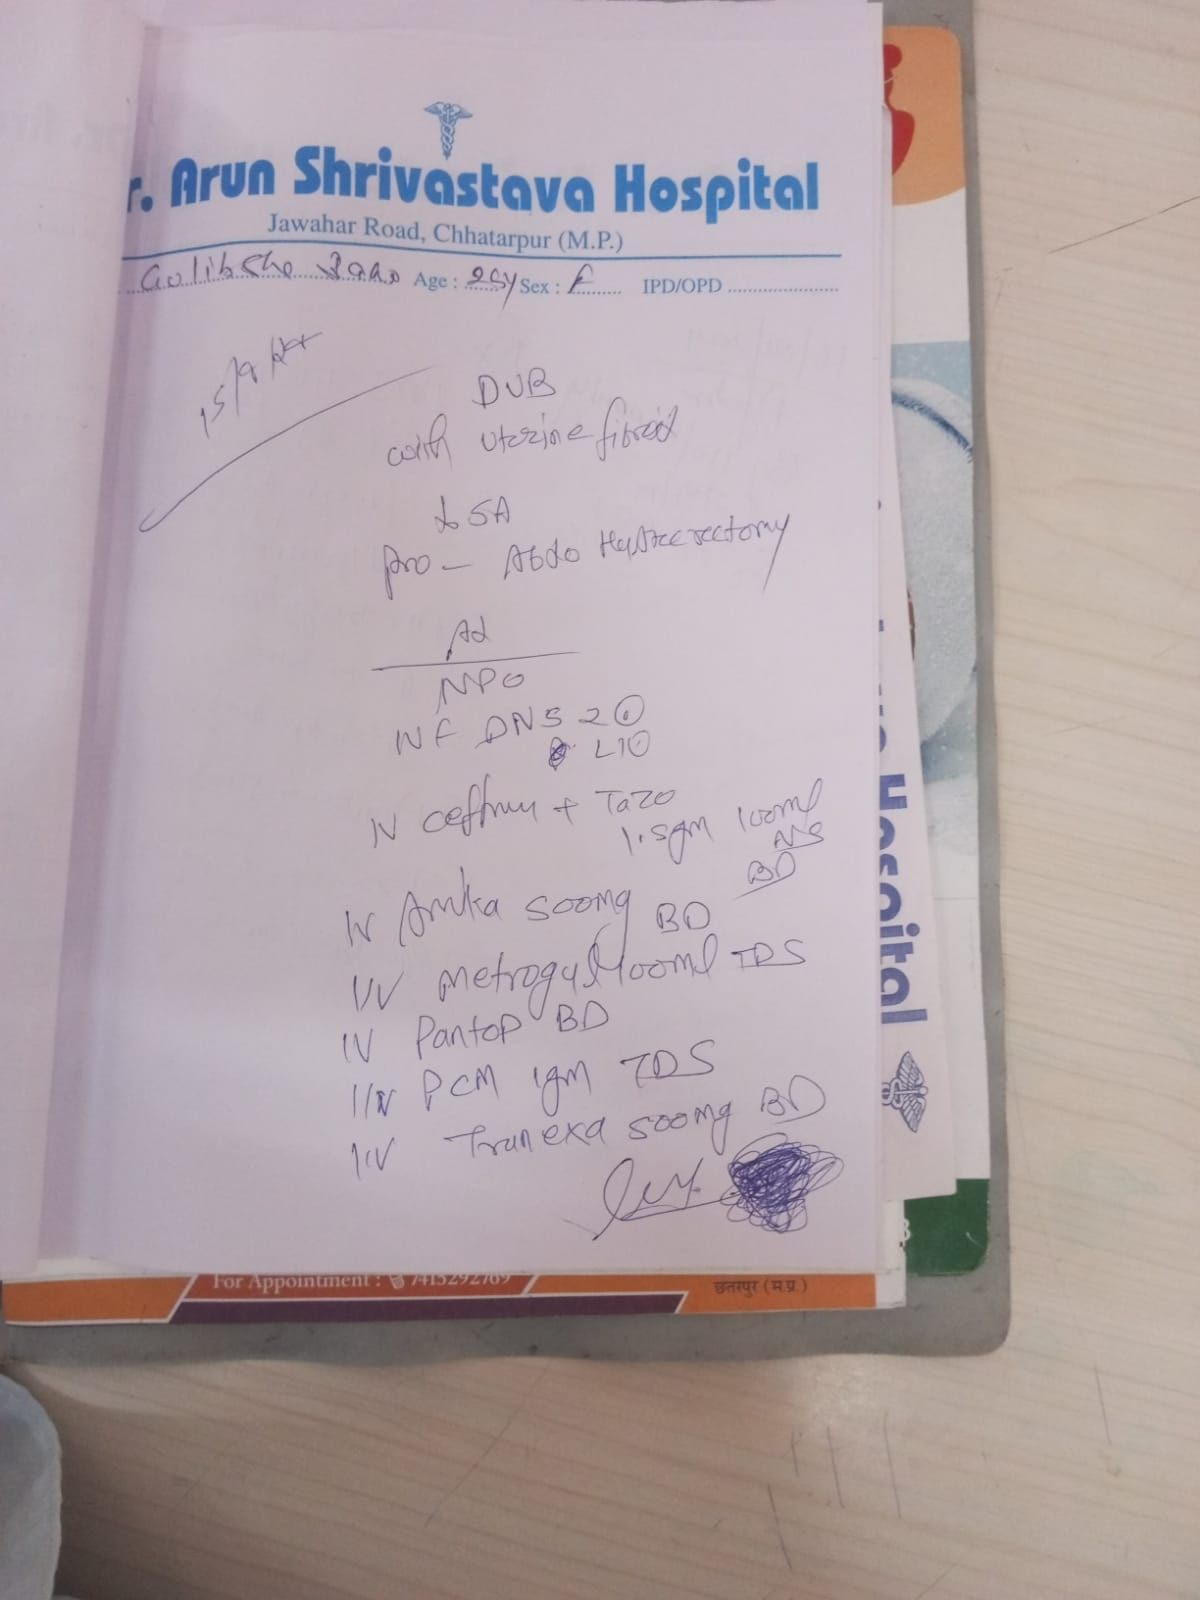 r. Arun Shrivastava Hospital
Jawahar Road, Chhatarpur (M.P.)
Age : Sex : F IPD/OPD
DUB
with uterine fibroid
SA
pro - Abdo Hysterectomy
Ad
NPO
IVF DNS 2
IV + Tazo
1.5gm 100ml
NS
BD
IV Amika 500mg BD
IV Metrogyl 100ml TDS
IV Pantop BD
IV PCM 1gm TDS
IV Tranexa 500mg BD
For Appointment : 7415292769
छतरपुर (म.प्र.)
Hospital